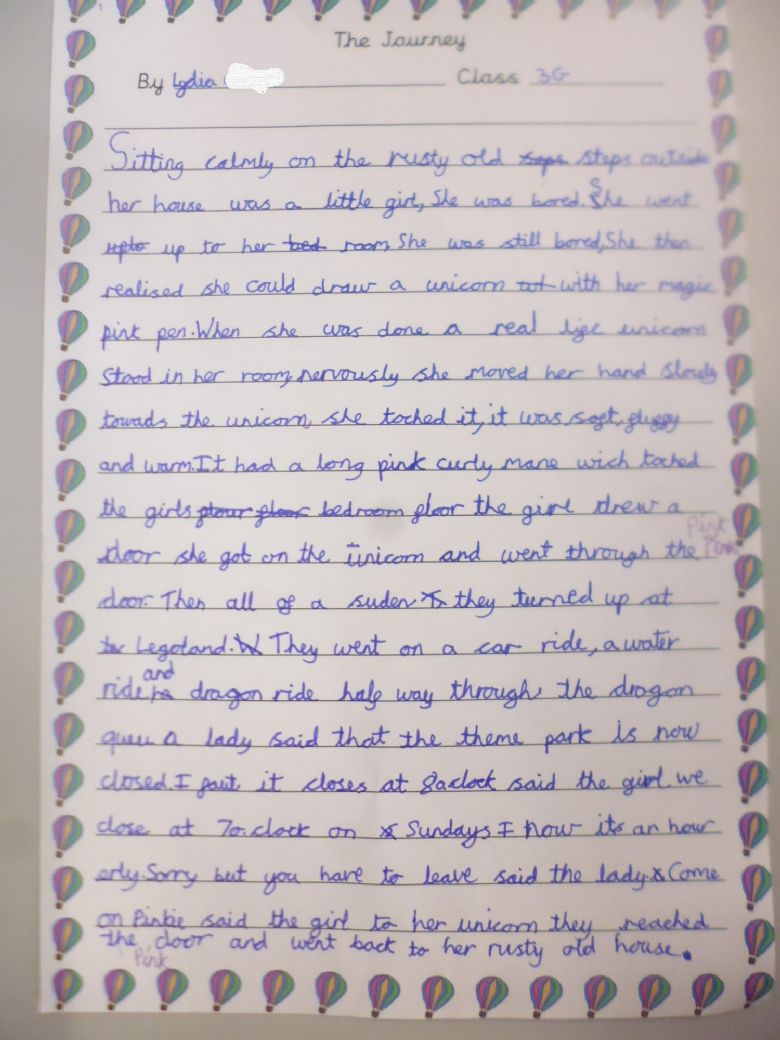 The Journey
By Lydia Class 3G
Sitting calmly on the rusty old steps outside
her house was a little girl, She was bored. She went
upto up to her bed room, She was still bored, She then
realised she could draw a unicorn with her magic
pink pen. When she was done a real life unicorn
Stood in her room, nervously she moved her hand slowly
towads the unicorn, she toched it, it was, soft, fluffy
and warm. It had a long pink curly mane wich toched
the girls floor bedroom floor the girl drew a
door she got on the unicorn and went through the
Pink
door. Then all of a suden they turned up at
Legoland. They went on a car ride, a water
and
ride dragon ride half way through the dragon
queu a lady said that the theme park is now
closed. I faut it closes at 8aclock said the girl. we
close at 7o.clock on Sundays I now its an hour
erly. Sorry but you have to leave said the lady. Come
on Pinkie said the girl to her unicorn they reached
the door and went back to her rusty old house.
Pink